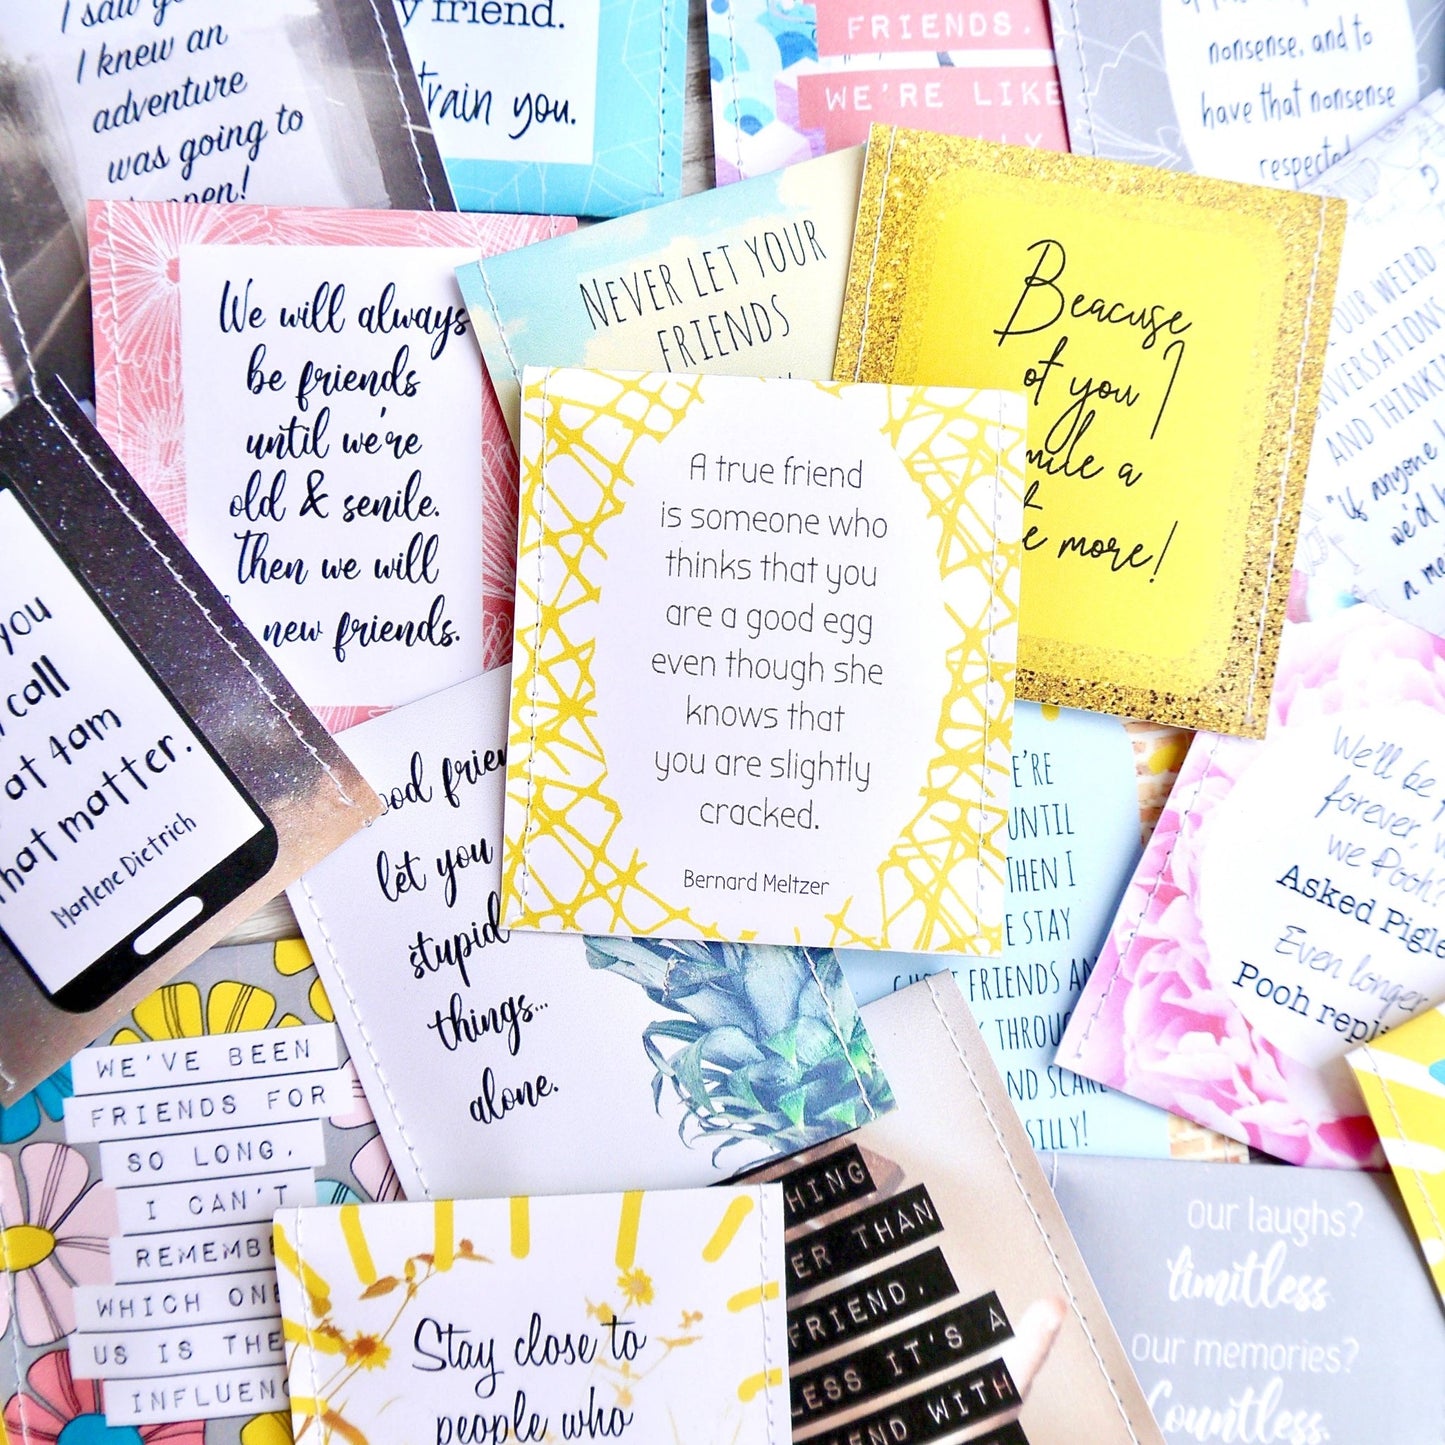 I saw
I knew an
adventure
was going to
happen!
y friend.
train you.
FRIENDS.
WE'RE LIKE
nonsense, and to
have that nonsense
respected
We will always
be friends
until we're
old & senile.
Then we will
new friends.
NEVER LET YOUR
FRIENDS
Beacuse
of you I
smile a
e more!
OUR WEIRD
CONVERSATIONS
AND THINK
"If anyone
we'd
a me
A true friend
is someone who
thinks that you
are a good egg
even though she
knows that
you are slightly
cracked.
Bernard Meltzer
you
call
at 4am
that matter.
Marlene Dietrich
Good frien
let you
stupid
things...
alone.
WE'RE
UNTIL
THEN I
E STAY
FRIENDS AN
THROUG
ND SCARE
SILLY!
We'll be
forever,
we Pooh?
Asked Pigle
Even longer
Pooh repli
WE'VE BEEN
FRIENDS FOR
SO LONG,
I CAN'T
REMEMBE
WHICH ONE
US IS THE
INFLUENC
Stay close to
people who
HING
ER THAN
FRIEND,
LESS IT'S A
END WITH
our laughs?
limitless.
our memories?
Countless.